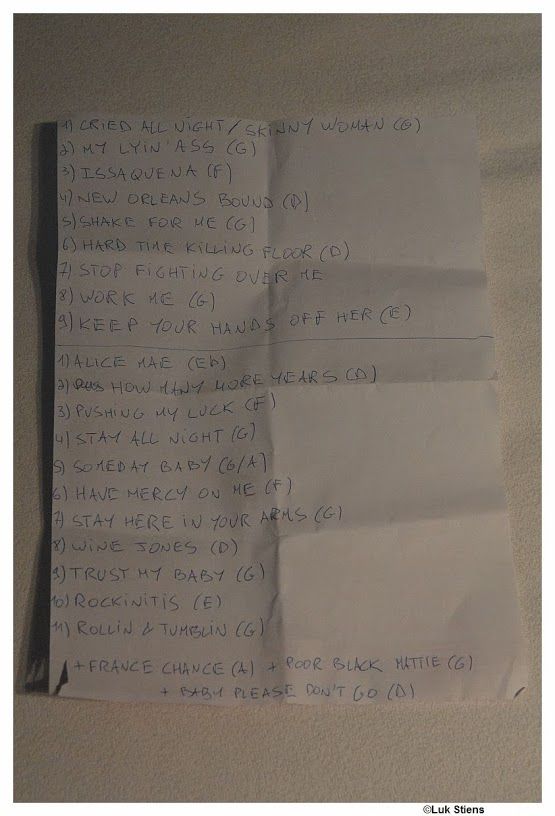 1) CRIED ALL NIGHT / SKINNY WOMAN (G)
2) MY LYIN' ASS (G)
3) ISSAQUENA (F)
4) NEW ORLEANS BOUND (D)
5) SHAKE FOR ME (G)
6) HARD TIME KILLING FLOOR (D)
7) STOP FIGHTING OVER ME
8) WORK ME (G)
9) KEEP YOUR HANDS OFF HER (E)
1) ALICE MAE (Eb)
2) HOW MANY MORE YEARS (D)
3) PUSHING MY LUCK (F)
4) STAY ALL NIGHT (G)
5) SOMEDAY BABY (G/A)
6) HAVE MERCY ON ME (F)
7) STAY HERE IN YOUR ARMS (G)
8) WINE JONES (D)
9) TRUST MY BABY (G)
10) ROCKINITIS (E)
11) ROLLIN & TUMBLIN (G)
+ FRANCE CHANCE (A) + POOR BLACK MATTIE (G)
+ BABY PLEASE DON'T GO (D)
©Luk Stiens